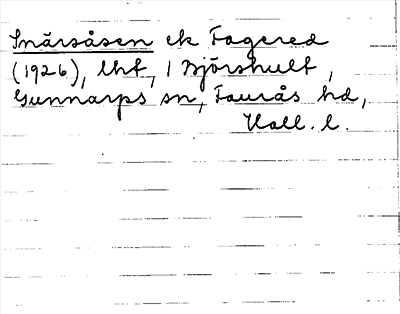 Snårsåsen ek Fagered
(1926), lht, i Björshult,
Gunnarps sn, Faurås hd,
Hall. l.